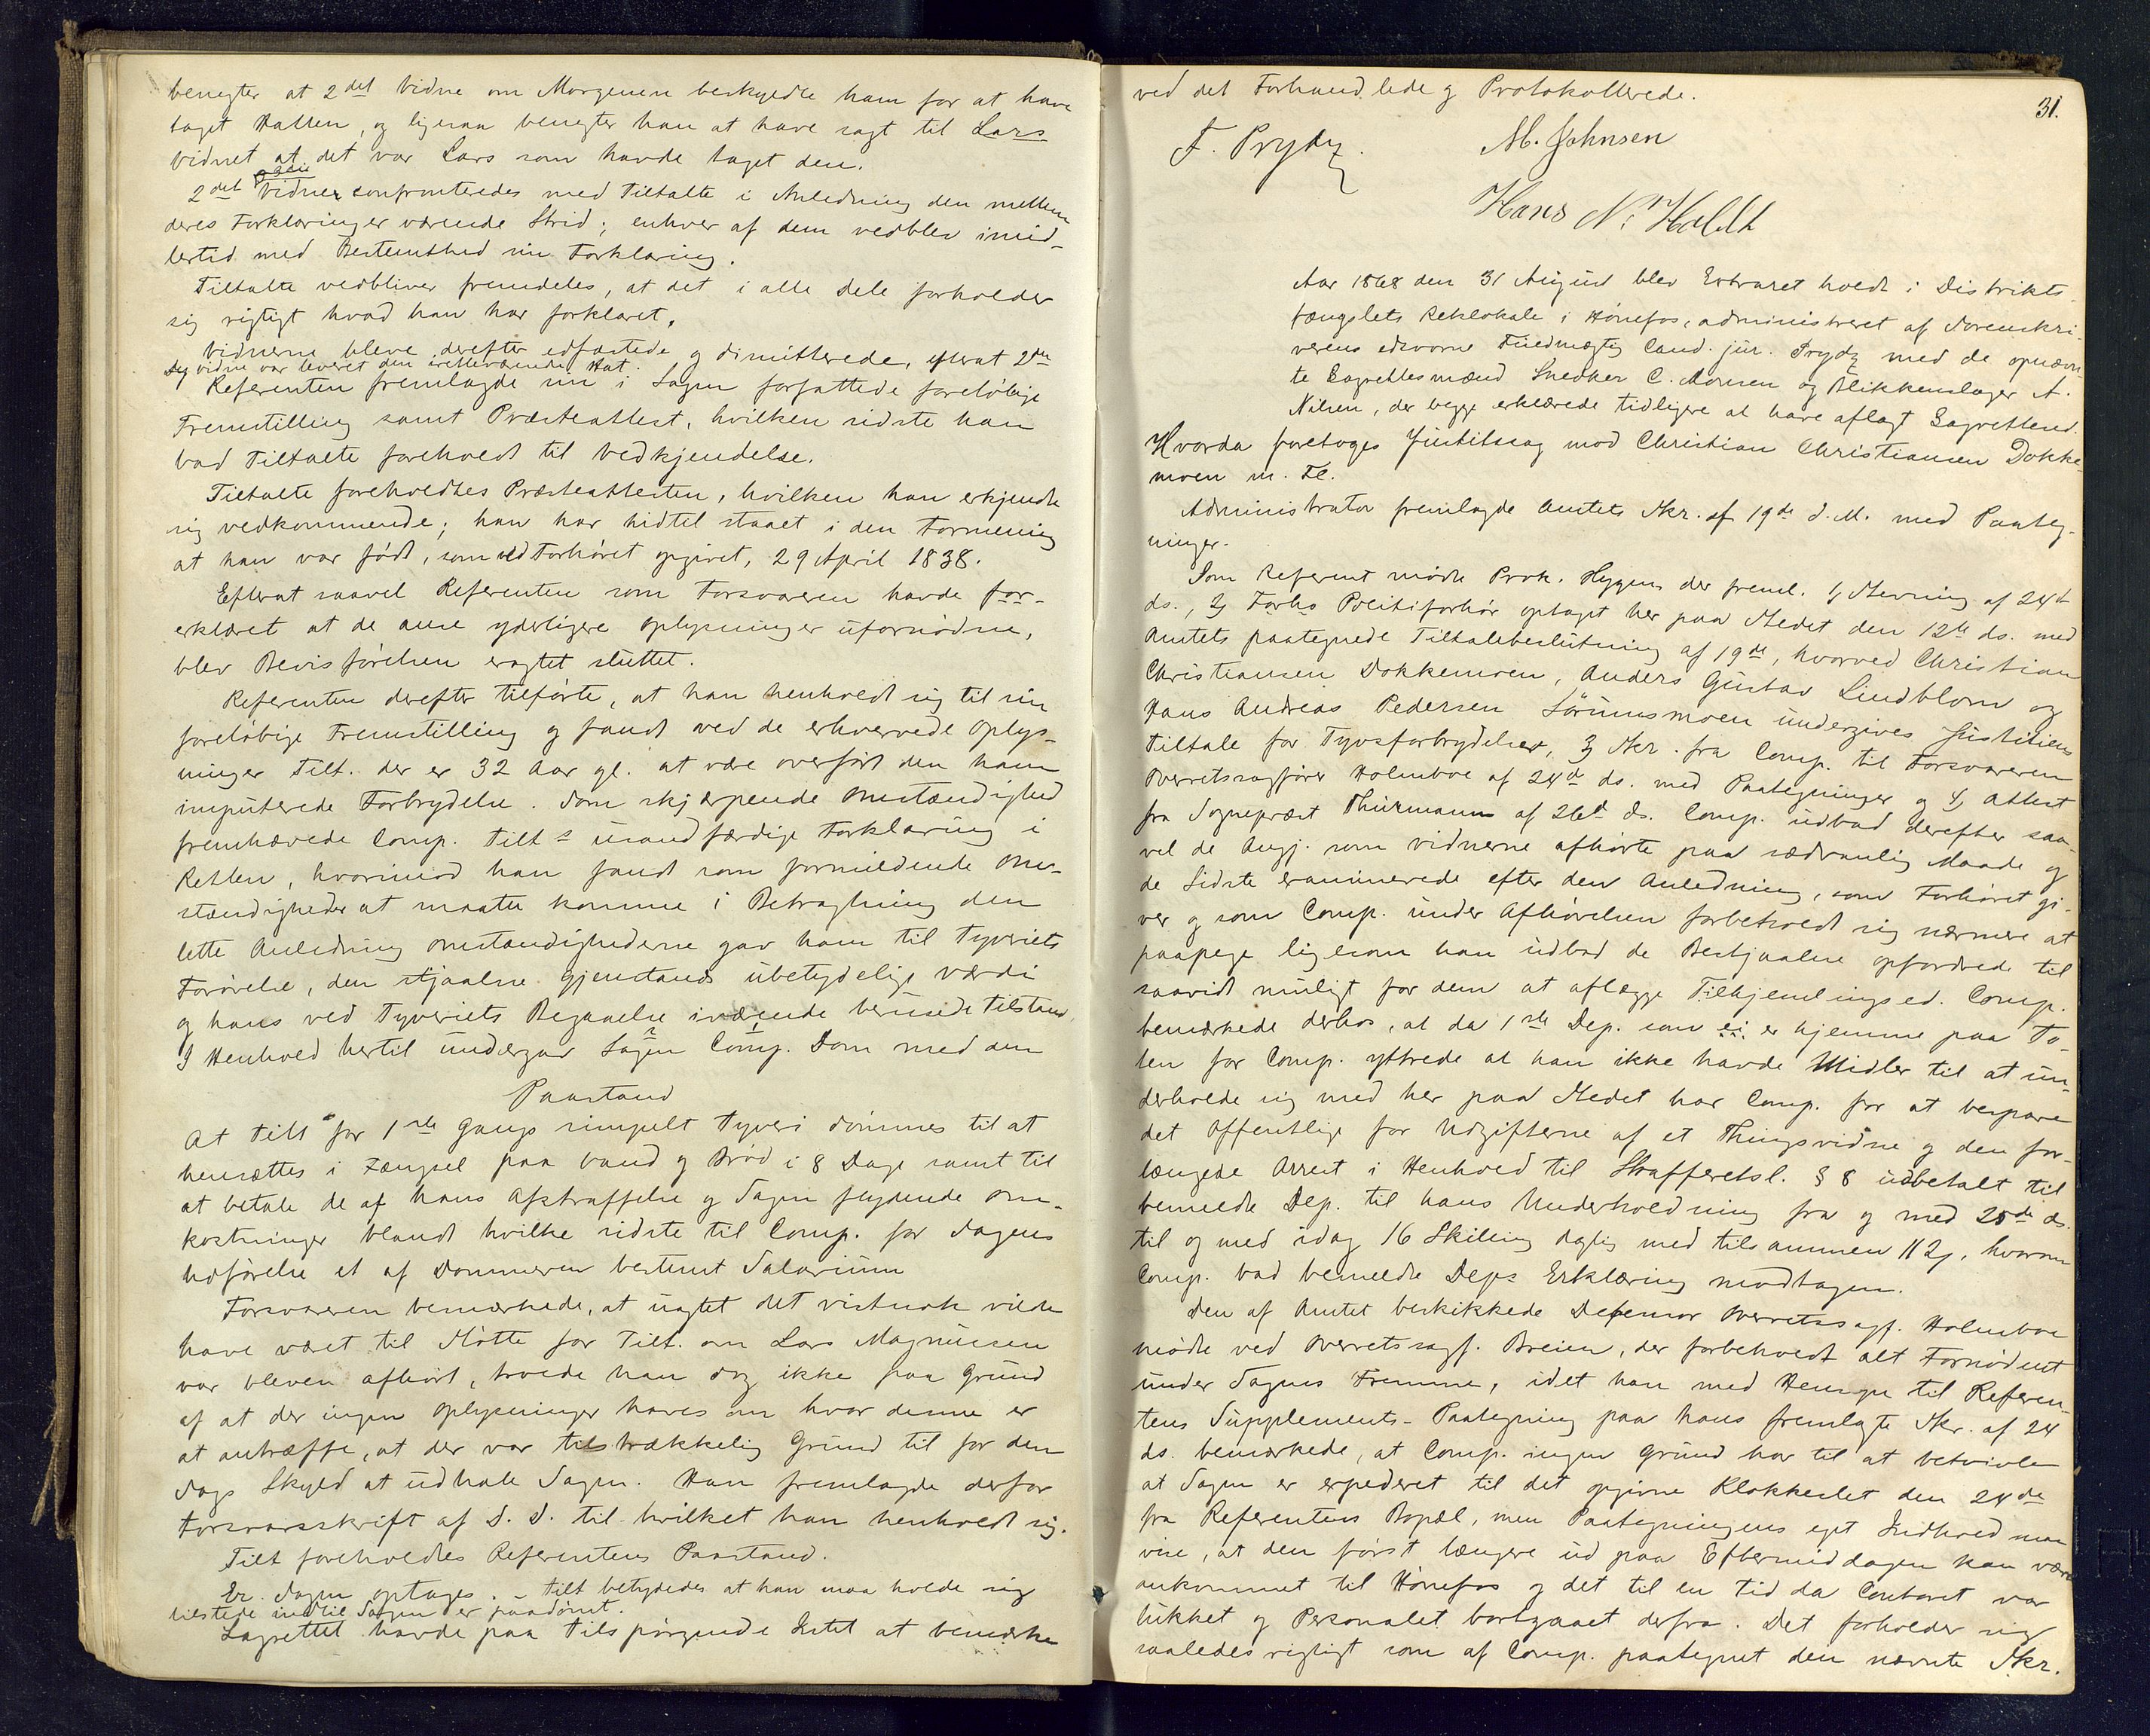 benegter at 2det Vidne om Morgenen beskyldte ham for at have
taget Hatten, og ligesaa benegter han at have sagt til Lars
vidnet at det var Lars som havde taget den.
2det Vidne confronteredes med Tiltalte i Anledning den mellem
deres Forklaringer værende Strid; enhver af dem vedblev imid-
lertid med Bestemthed sin Forklaring.
Tiltalte vedbliver fremdeles, at det i alle Dele forholder
sig rigtigt hvad han har forklaret.
Vidnerne bleve derefter edfæstede og dimitterede, efterat 2det
Vidne var leveret den iretteværende Hat.
Referenten fremlagde nu i Sagen forfattede foreløbige
Fremstilling samt Præsteattest, hvilken sidste han
bad Tiltalte foreholdt til Vedkjendelse.
Tiltalte foreholdtes Præsteattesten, hvilken han erkjendte
sig vedkommende; han har hidtil staaet i den Formening
at han var født, som ved Forhøret opgivet, 29 April 1838.
Efterat saavel Referenten som Forsvareren havde for-
erklæret at de ansee yderligere Oplysninger ufornødne,
blev Bevisførelsen eragtet sluttet.
Referenten derefter tilførte, at han henholdt sig til sin
foreløbige Fremstilling og fandt ved de erhvervede Oplys-
ninger Tilt. der er 32 Aar gl. at være overført den ham
imputerede Forbrydelse. Som skjærpende Omstændighed
fremhævede Comp. Tilts usandfærdige Forklaring i
Retten, hvorimod han fandt som formildende Om-
stændigheder at maatte komme i Betragtning den
lette Anledning Omstændighederne gav ham til Tyveriets
Forøvelse, den stjaalne Gjenstands ubetydelige Værdi
og hans ved Tyveriets Begaaelse værende berusede Tilstand.
I Henhold hertil undergav Sagen Comp. Dom med den
Paastand
At Tilt for 1ste Gangs simpelt Tyveri dømmes til at
hensættes i Fængsel paa Vand og Brød i 8 Dage samt til
at betale de af hans Afstraffelse og Sagen flydende Om-
kostninger blandt hvilke sidste til Comp. for Sagens
Udførelse et af Dommeren bestemt Salarium
Forsvareren bemærkede, at uagtet det vistnok vilde
have været til Støtte for Tilt. om Lars Magnussen
var bleven afhørt, troede han dog ikke paa Grund
af at der ingen Oplysninger haves om hvor denne er
at antræffe, at der var tilstrækkelig Grund til for den
Sags Skyld at udhale Sagen. Han fremlagde derfor
Forsvarsskrift af D. D. til hvilket han henholdt sig.
Tilt foreholdtes Referentens Paastand.
Er. Sagen optages. – Tilt betydedes at han maa holde sig
tilstede indtil Sagen er paadømt.
Lagrettet havde paa Tilspørgende Intet at bemærke
31.
ved det Forhandlede og Protokollerede.
F. Prydz.
M. Johnsen
Hans N. Holdt
Aar 1868 den 31 August blev Extraret holdt i Distrikts-
fængslets Retslokale i Hønefos, administreret af Sorenskri-
verens edsvorne Fuldmægtig Cand. jur. Prydz med de opnævn-
te Lagrettesmænd Snedker C. Monsen og Blikkenslager A.
Nilsen, der begge erklærede tidligere at have aflagt Lagrettesed.
Hvorda foretoges Justitssag mod Christian Christiansen Dokke-
moen m. Fl.
Administrator fremlagde Amtets Skr. af 19de d. M. med Paateg-
ninger.
Som Referent mødte Prok. Hygen der freml. 1, Stevning af 24de
ds., 2, Forhs Politiforhør optaget her paa Stedet den 12te ds. med
Amtets paategnede Tiltalebeslutning af 19de, hvorved Christian
Christiansen Dokkemoen, Anders Gustav Lindblom og
Hans Andreas Pedersen Sørumsmoen undergives Justitiens
Tiltale for Tyvsforbrydelser, 3, Skr. fra Comp. til Forsvareren
Overretssagfører Holmboe af 24de ds. med Paategninger og 4, Attest
fra Sognepræst Thurmann af 26de ds. Comp. udbad derefter saa-
vel de Angj. som Vidnerne afhørte paa sædvanlig Maade og
de Sidste examinerede efter den Anledning, som Forhøret gi-
ver og som Comp. under Afhørelsen forbeholdt sig nærmere at
paapege ligesom han udbad de Bestjaalne opfordrede til
saavidt muligt for dem at aflægge Tilhjemlingsed. Comp.
bemærkede derhos, at da 1ste Dep. som ei er hjemme paa To-
ten for Comp. yttrede at han ikke havde Midler til at un-
derholde sig med her paa Stedet har Comp. for at bespare
det Offentlige for Udgifterne af et Thingsvidne og den for-
længede Arrest i Henhold til Strafferetsl. § 8 udbetalt til
bemeldte Dep. til hans Underholdning fra og med 25de ds.
til og med idag 16 Skilling daglig med tilsammen 112 s, hvorom
Comp. bad bemeldte Deps Erklæring modtagen.
Den af Amtet beskikkede Defensor Overretssagf. Holmboe
mødte ved Overretssagf. Breien, der forbeholdt alt Fornødent
under Sagens Fremme, idet han med Hensyn til Referen-
tens Supplements-Paategning paa hans fremlagte Skr. af 24
ds. bemærkede, at Comp. ingen Grund har til at betvivle
at Sagen er expederet til det opgivne Klokkeslet den 24de
fra Referentens Bopæl, men Paategningens eget Indhold maa
vise, at den først længere ud paa Eftermiddagen kan være
ankommet til Hønefos og det til en Tid da Contoret var
lukket og Personalet bortgaaet derfra. Det forholder sig
saaledes rigtigt som af Comp. paategnet den nævnte Skr.